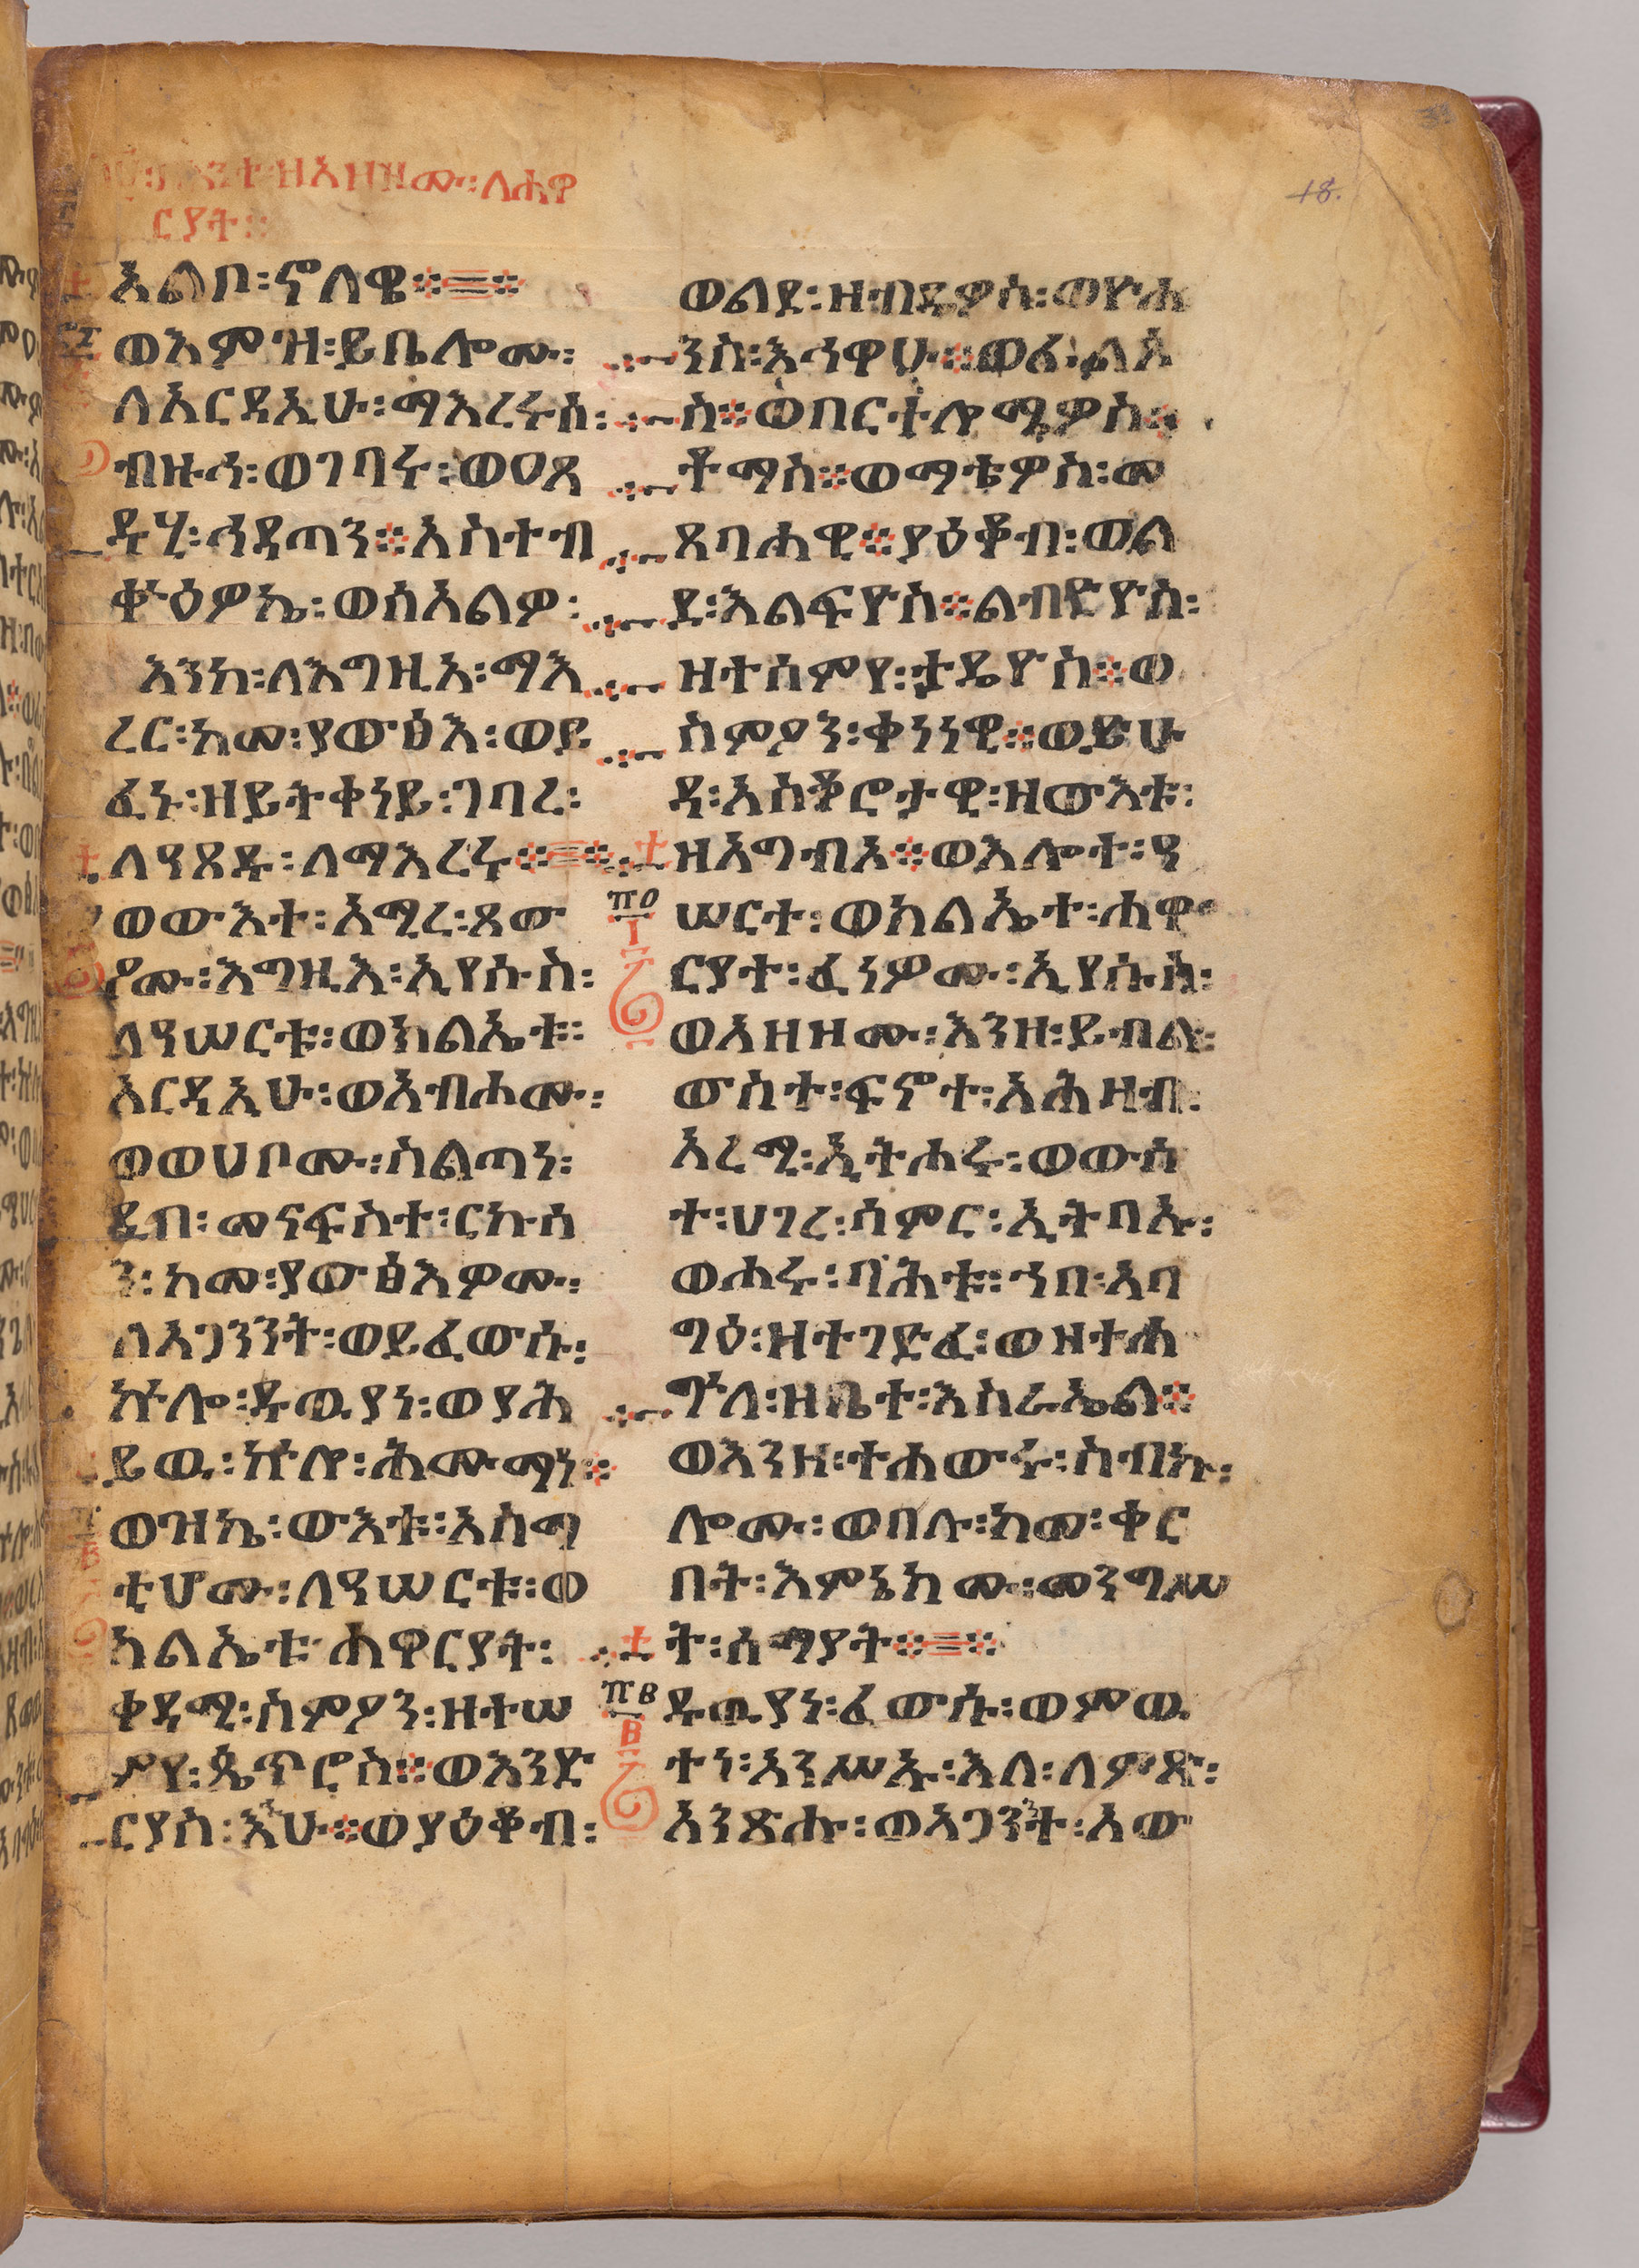 ዘአዘዞሙ፡ለሐዋ
ርያት፡፡
አልቦ፡ኖላዌ፨
ወእምዝ፡ይቤሎሙ፡
ለአርዳኢሁ፡ማእረሩሰ፡
ብዙኅ፡ወገባሩ፡ወዐጸ
ዱሂ፡ኅዳጣን፨አስተብ
ቍዕዎኬ፡ወሰአልዎ፡
እንከ፡ለእግዚአ፡ማእ
ረር፡ከመ፡ያውፅእ፡ወይ
ፈኑ፡ዘይትቀነይ፡ገባረ፡
ለዓጸዱ፡ለማእረሩ፨
ወውእተ፡አሚረ፡ጸው
ዖሙ፡እግዚእ፡ኢየሱስ፡
ለዓሠርቱ፡ወክልኤቱ፡
አርዳኢሁ፡ወአብሖሙ፡
ወወሀቦሙ፡ስልጣነ፡
ዲበ፡መናፍስተ፡ርኩሳ
ን፡ከመ፡ያውፅእዎሙ፡
ለአጋንንት፡ወይፈውሱ፡
ኵሎ፡ዱዉያነ፡ወያሕ
ይዉ፡ኵሎ፡ሕሙማነ፨
ወዝኬ፡ውእቱ፡አስማ
ቲሆሙ፡ለዓሠርቱ፡ወ
ክልኤቱ፡ሐዋርያት፡
ቀዳሚ፡ስምዖን፡ዘተሠ
ምየ፡ጴጥሮስ፨ወእንድ
ርያስ፡እኁሁ፨ወያዕቆብ፡
18.
ወልደ፡ዘብዴዎስ፡ወዮሐ
ንስ፡እኅዋሁ፨ወፊልጶ
ስ፨ወበርተሎሜዎስ፨
ቶማስ፨ወማቴዎስ፡መ
ጸባሐዊ፨ያዕቆብ፡ወል
ደ፡እልፍዮስ፨ልብድዮስ፡
ዘተሰምየ፡ታዴዮስ፨ወ
ስምዖን፡ቀነናዊ፨ወይሁ
ዳ፡አስቆሮታዊ፡ዘውእቱ፡
ዘአግብአ፨ወእሎተ፡ዓ
ሠርተ፡ወክልኤተ፡ሐዋ
ርያተ፡ፈነዎሙ፡ኢየሱስ፡
ወአዘዞሙ፡እንዘ፡ይብል፡
ውስተ፡ፍኖተ፡አሕዛብ፡
አረሚ፡ኢትሖሩ፡ወውስ
ተ፡ሀገረ፡ሳምር፡ኢትባኡ፡
ወሖሩ፡ባሕቱ፡ኀበ፡አባ
ግዕ፡ዘተገድፈ፡ወዘተሐ
ጕለ፡ዘቤተ፡እስራኤል፨
ወእንዘ፡ተሐውሩ፡ስብኩ፡
ሎሙ፡ወበሉ፡ከመ፡ቀር
በት፡እምኔክሙ፡መንግሥ
ት፡ሰማያት፨
፹ወ
፪
ዱዉያነ፡ፈውሱ፡ወምዉ
ተነ፡አንሥኡ፡እለ፡ለምጽ፡
አንጽሑ፡ወአጋንንት፡አው